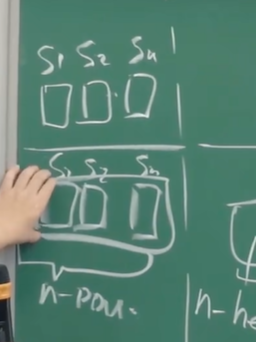 S1 S2 Sn
S1 S2 Sn
n-pou.
n-he